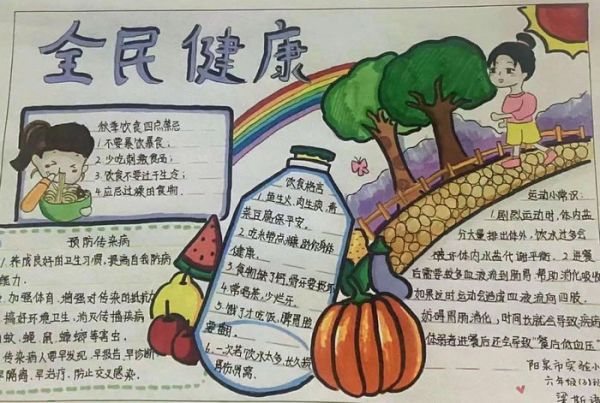 全民健康
秋季饮食四点禁忌
1. 不要暴饮暴食；
2. 少吃刺激食品；
3. 饮食不要过于生冷；
4. 应忌过燥的食物。
预防传染病
1. 养成良好的卫生习惯，提高自我防病
能力。
加强体育，增强对传染的抵抗力
搞好环境卫生，消灭传播疾病
蚊、蝇、鼠、蟑螂等害虫。
传染病人要早发现，早报告，早诊断
早隔离，早治疗，防止交叉感染。
饮食格言
1. 鱼生火，肉生痰，青
菜豆腐保平安。
2. 吃米带点糠，助你身体
健康。
3. 食物缺了钙，骨
4. 常喝茶，少烂牙。
5. 饿了才吃饭，脾胃脸
6. 一次若饮水太多，
易伤
运动小常识：
1. 剧烈运动时，体内盐
分大量排出体外，饮水过多会
破坏体内水盐代谢平衡。2. 进餐
后需要较多血液流到肠胃，帮助消化吸收
如果这时运动会造成血液流向四肢，
妨碍胃肠消化，时间长就会导致疾病
体弱者进餐后还会导致“餐后低血压”
阳泉市实验小
六年级(3)班
梁斯